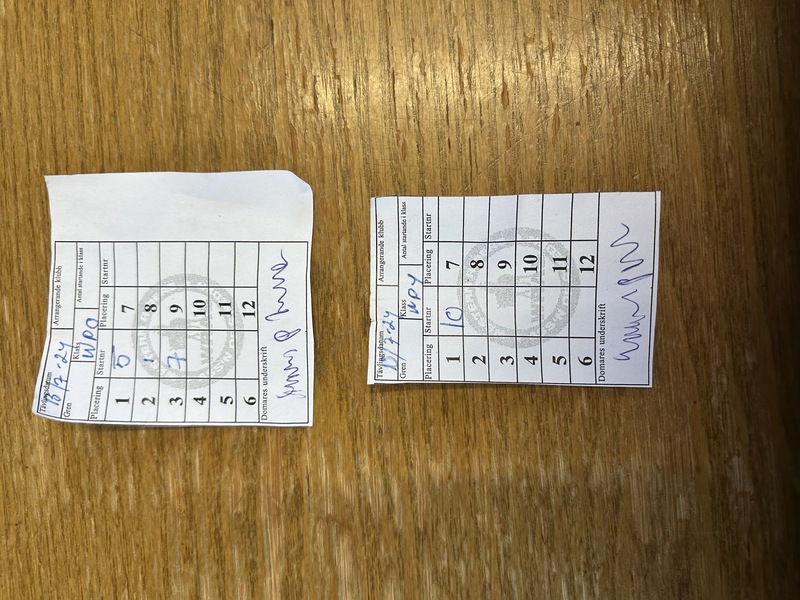 Tävlingsdatum Arrangerande klubb
13/7-24
Gren Klass Antal startande i klass
WPO
Placering Startnr Placering Startnr
1 5 7
2 1 8
3 7 9
4 10
5 11
6 12
Domares underskrift
Tävlingsdatum Arrangerande klubb
13/7-24
Gren Klass Antal startande i klass
WPY
Placering Startnr Placering Startnr
1 10 7
2 8
3 9
4 10
5 11
6 12
Domares underskrift